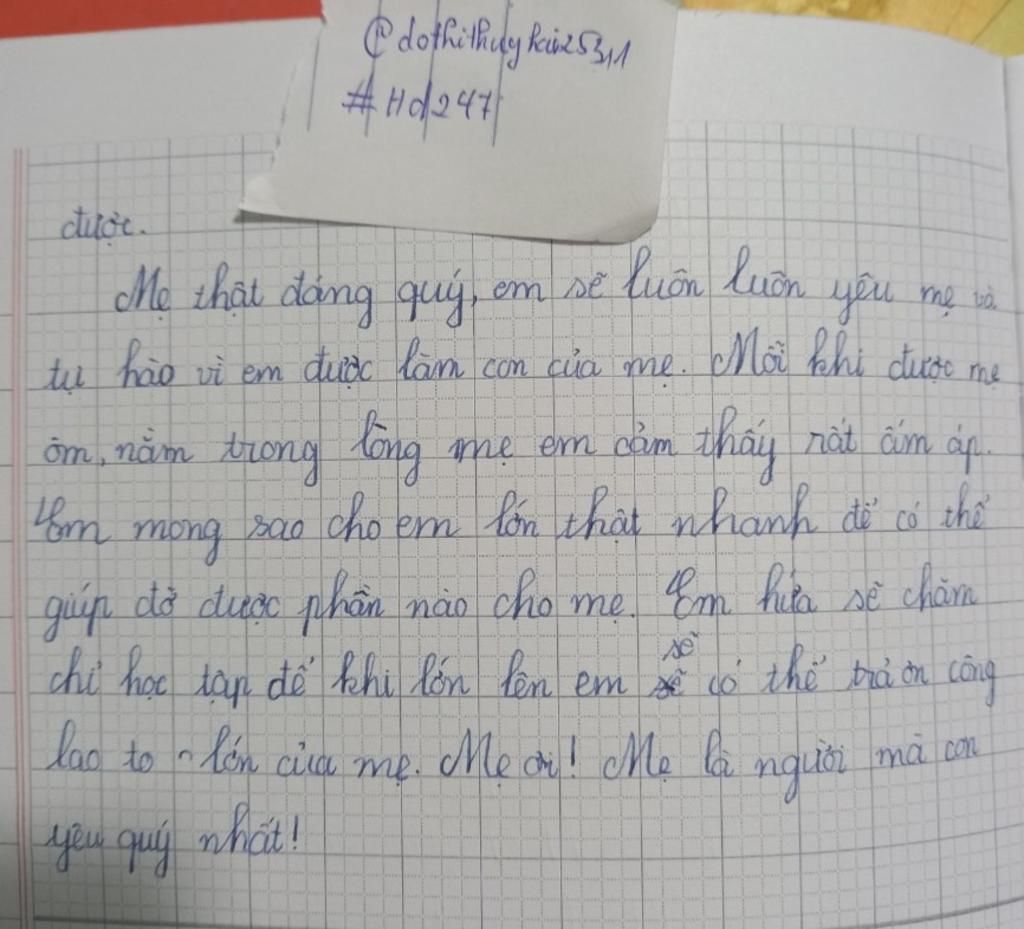 @dothithuyhai25311
#Hd247
được.
Mẹ thật đáng quý, em sẽ luôn luôn yêu mẹ và
tự hào vì em được làm con của mẹ. Mỗi khi được mẹ
ôm, nằm trong lòng mẹ em cảm thấy rất ấm áp.
Em mong sao cho em lớn thật nhanh để có thể
giúp đỡ được phần nào cho mẹ. Em hứa sẽ chăm
chỉ học tập để khi lớn lên em sẽ có thể trả ơn công
lao to lớn của mẹ. Mẹ ơi! Mẹ là người mà con
yêu quý nhất!